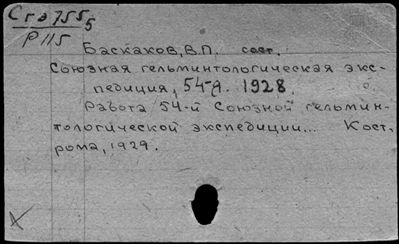 Сгэ755₅
Р115
Баскаков, В.П. сост.
Союзная гельминтологическая экс-
педиция, 54-я. 1928.
Работа 54-й Союзной гельмин-
тологической экспедиции... Кост-
рома, 1929.